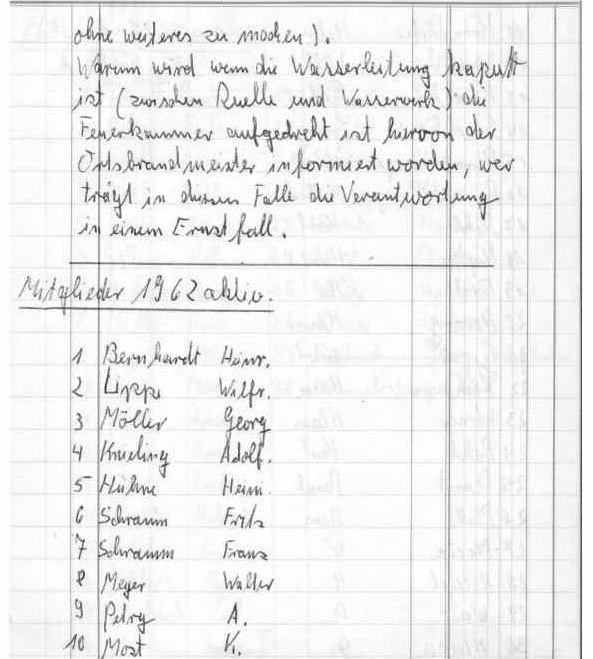 ohne weiteres zu machen).
Warum wird wenn die Wasserleitung kaputt
ist (zwischen Quelle und Wasserwerk) die
Feuerkammer aufgedreht ist hiervon der
Ortsbrandmeister informiert worden, wer
trägt in diesem Falle die Verantwortung
in einem Ernstfall.
Mitglieder 1962 aktiv.
1 Bernhardt Heinr.
2 Lippe Wilfr.
3 Möller Georg
4 Knieling Adolf.
5 Hühne Heinr.
6 Schramm Fritz
7 Schramm Franz
8 Meyer Walter
9 Petry A.
10 Most K.